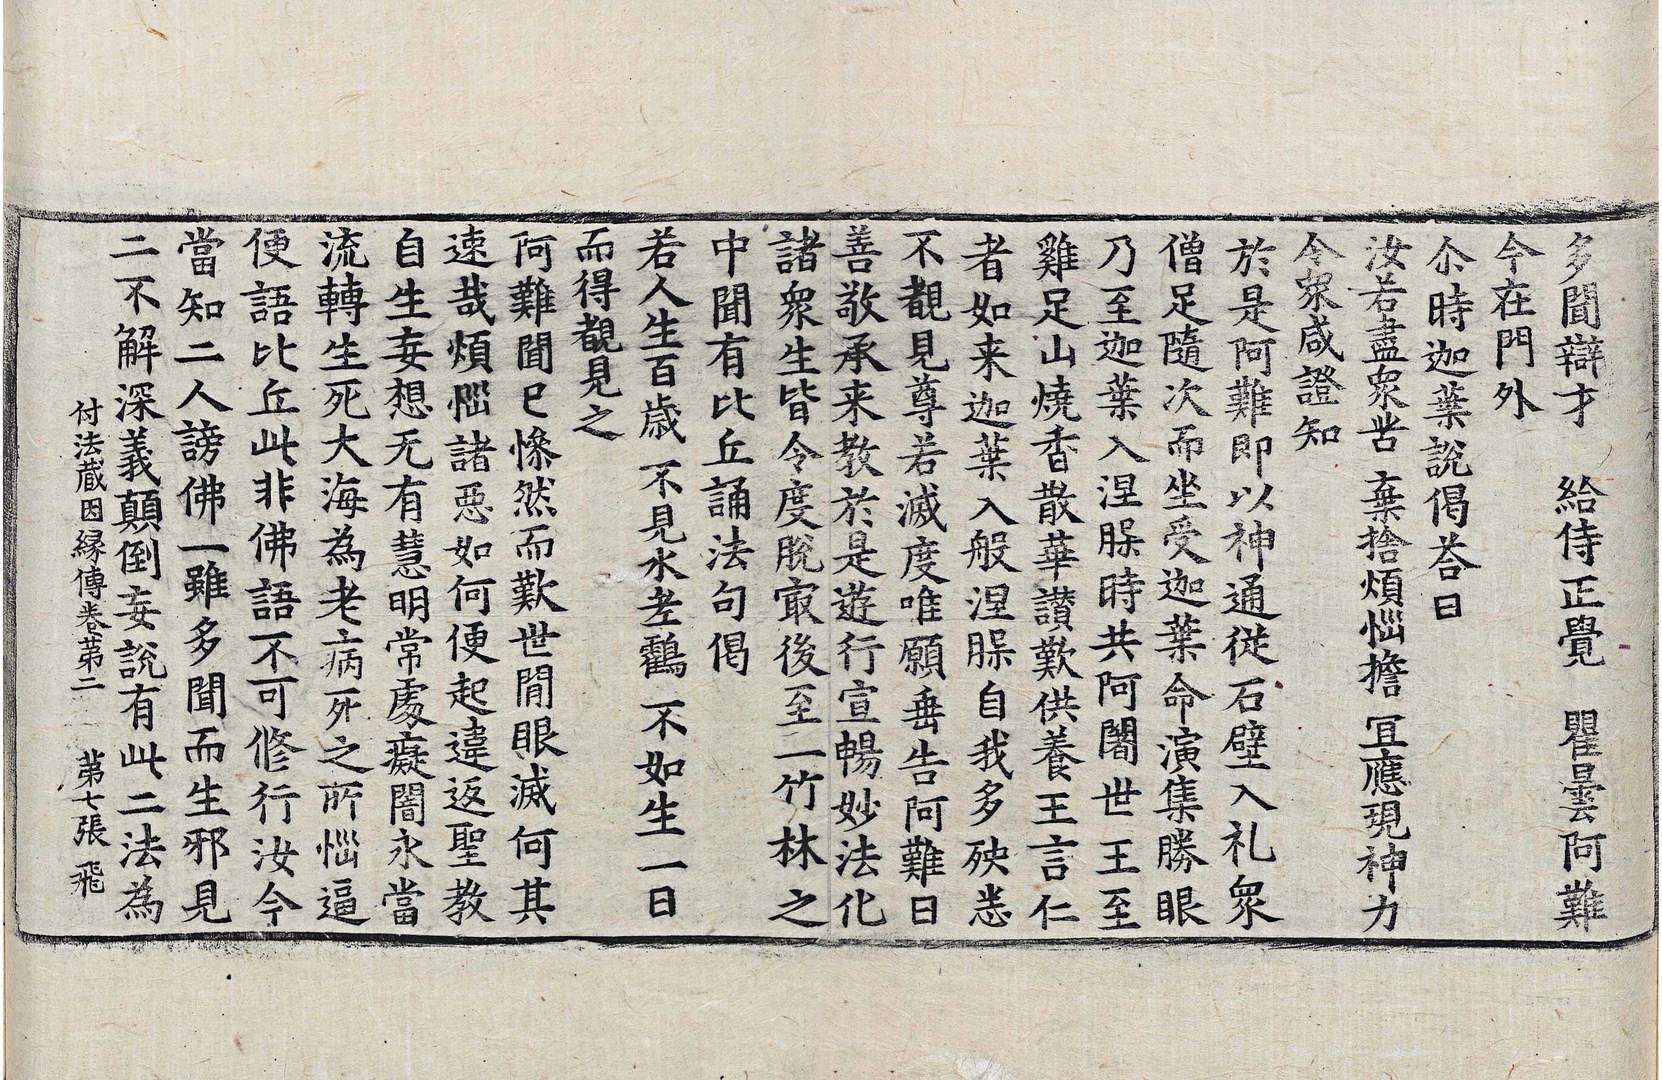 多聞辯才　給侍正覺　瞿曇阿難
今在門外
尒時迦葉說偈荅曰
汝若盡衆苦　棄捨煩惱擔　冝應現神力
令衆咸證知
於是阿難即以神通從石壁入礼衆
僧足隨次而坐受迦葉命演集勝眼
乃至迦葉入涅槃時共阿闍世王至
雞足山燒香散華讃歎供養王言仁
者如来迦葉入般涅槃自我多殃悉
不覩見尊若滅度唯願垂告阿難曰
善敬承来教於是遊行宣暢妙法化
諸衆生皆令度脫㝡後至一竹林之
中聞有比丘誦法句偈
若人生百歲　不見水老鸖　不如生一日
而得覩見之
阿難聞已慘然而歎世間眼滅何其
速哉煩惱諸惡如何便起違返聖教
自生妄想无有慧明常處癡闇永當
流轉生死大海為老病死之所惱逼
便語比丘此非佛語不可修行汝今
當知二人謗佛一雖多聞而生邪見
二不解深義顛倒妄說有此二法為
付法蔵因縁傳卷苐二　苐七張　飛